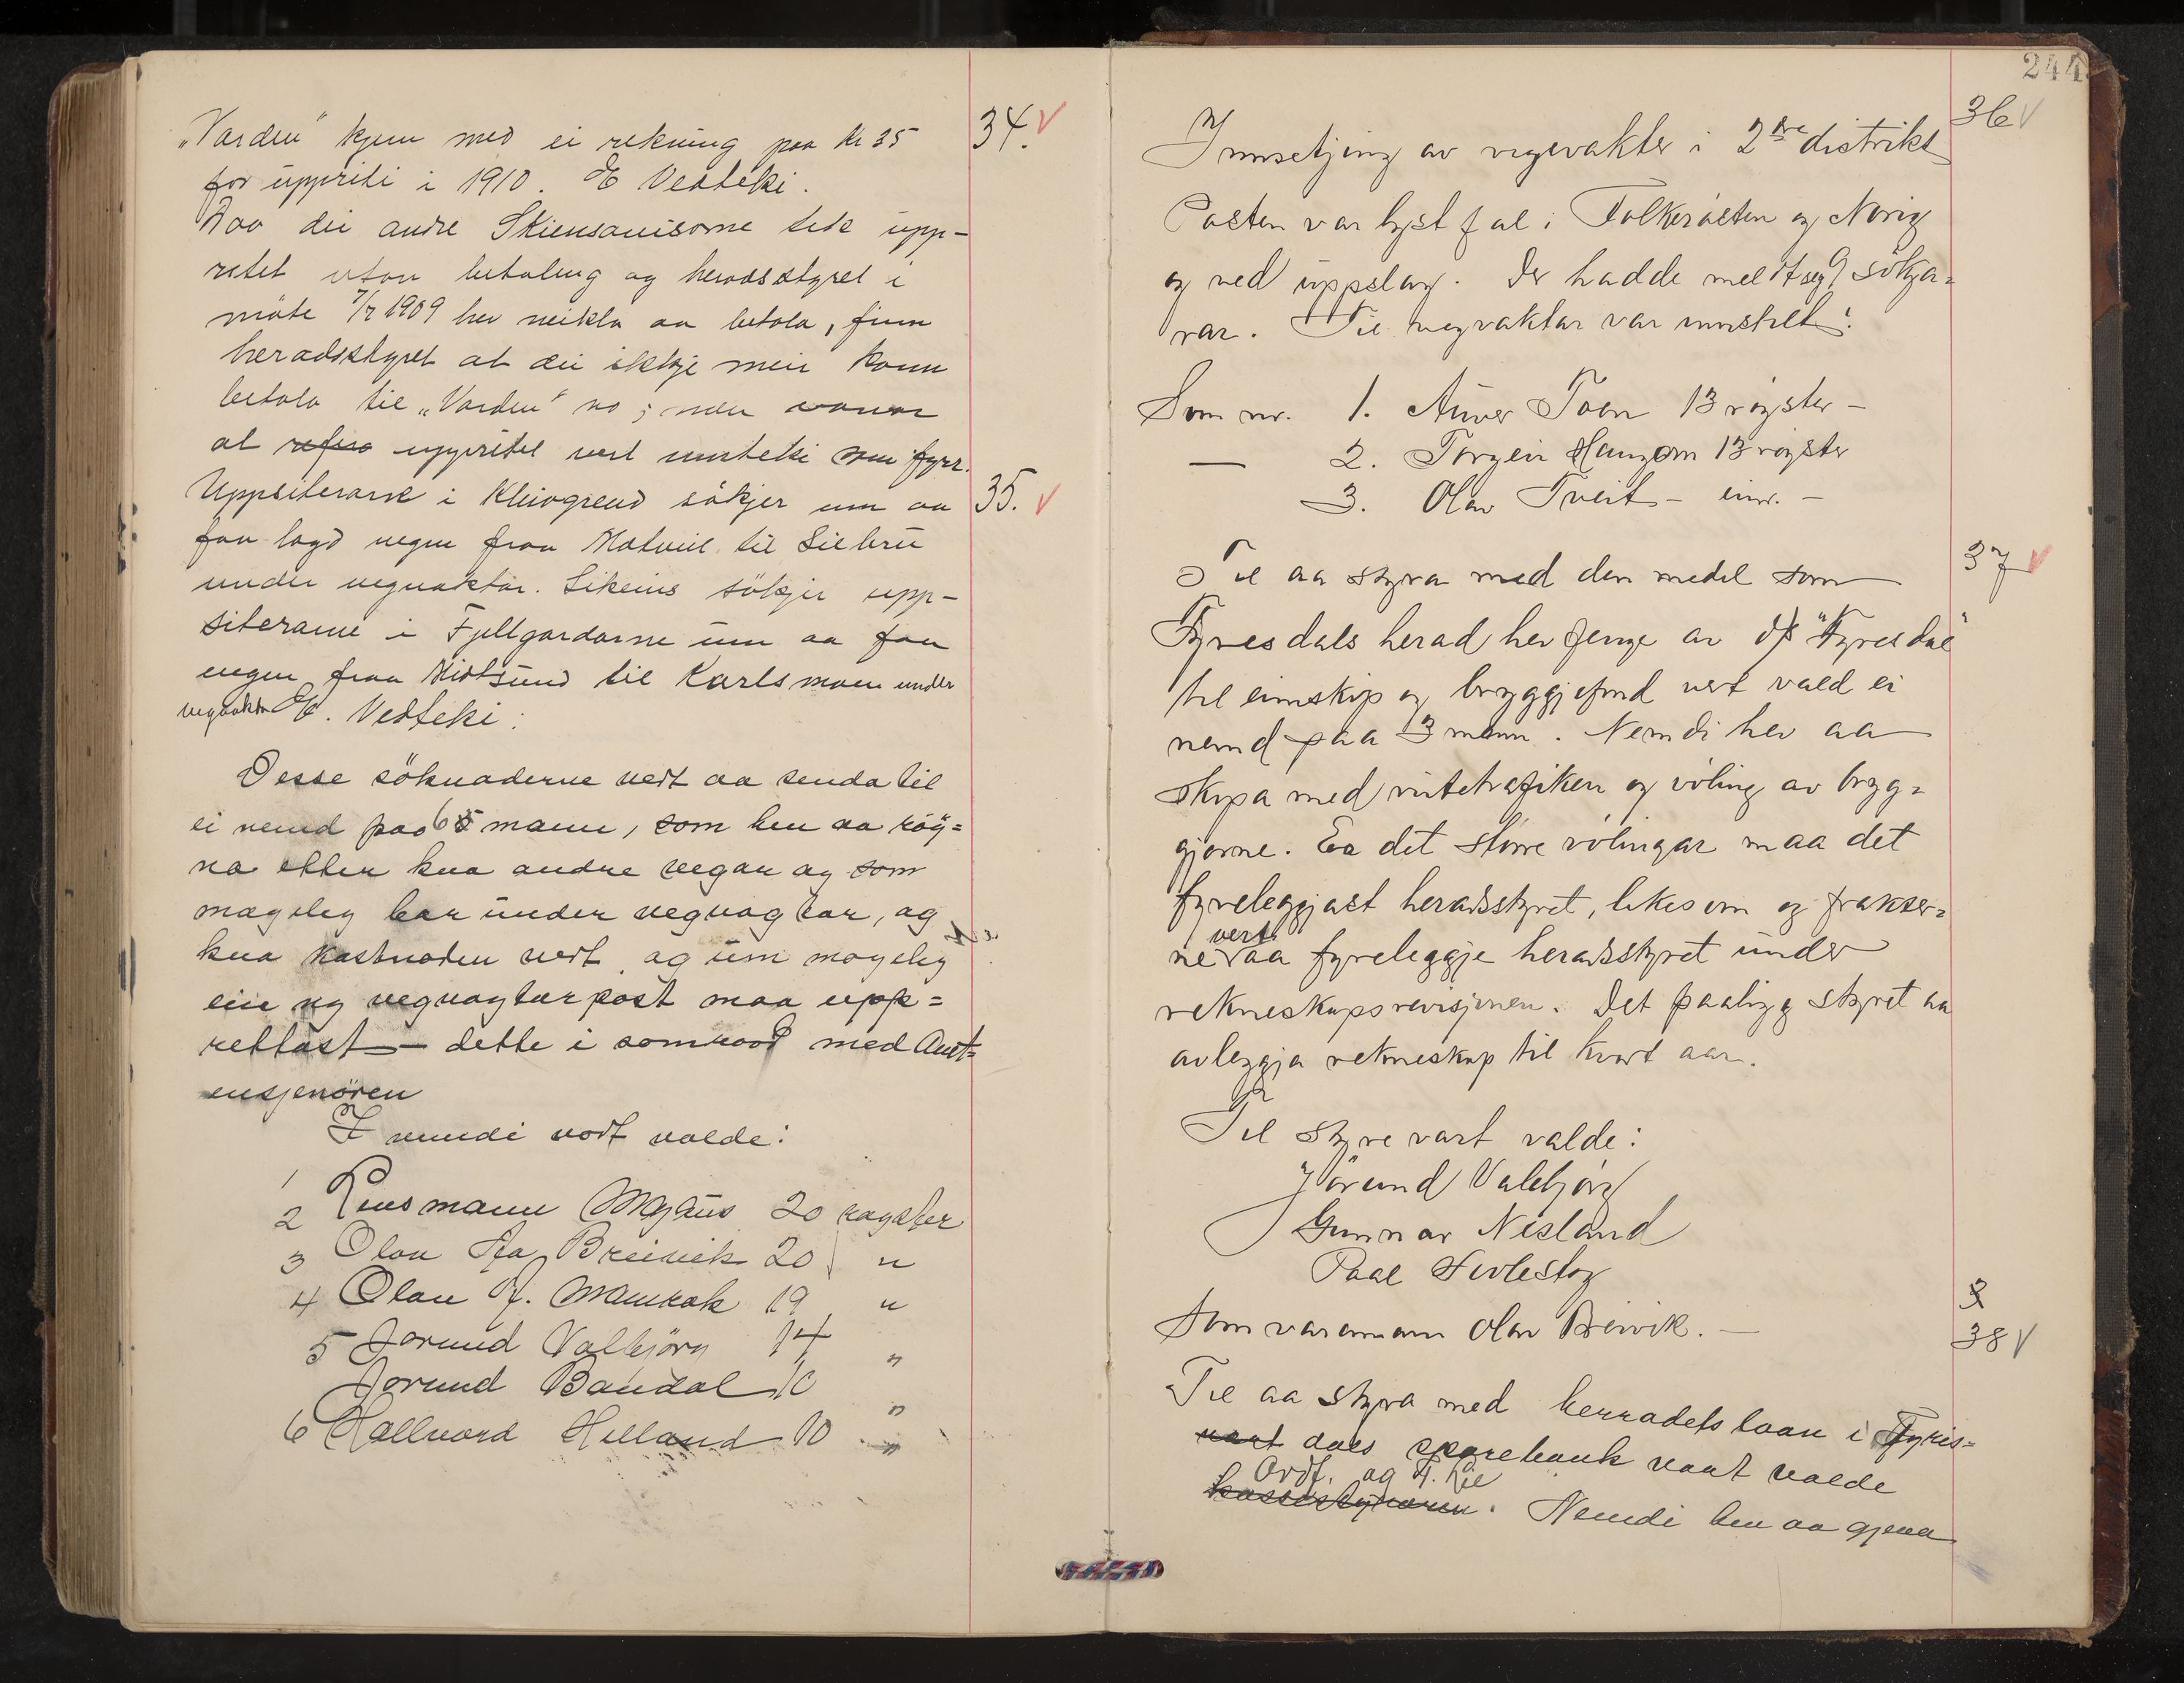 34.
„Varden" kjem med ei rekning paa Kr 35
for uppriti i 1910. E Vedteki.
Daa dei andre Skiensavisorne tek upp-
ritet utan betaling og heradsstyret i
møte 7/2 1909 hev neikta aa betala, finn
heradsstyret at dei ikkje meir kann
betala til „Varden" no; men
at uppritet vert innteki som fyrr.
35.
Uppsiterane i Kleivgrend søkjer um aa
faa lagd vegen fraa Motveit til Siebru
under vegvaktar. Likeins søkjer upp-
siterane i Fjellgardarne um aa faa
vegen fraa Midtsund til Karlsmoen under
vegvakta E. Vedteki:
Desse søknaderne vert aa senda til
ei nemd paa 6 mann, som hev aa røg-
na etter kva andre vegar ag som
mageleg bør under vegvagtar, ag
kva kostnaden vert, ag um mageleg
ein ny vegvagtarpost maa upp=
rettast – dette i samraad med Amt-
ensjenøren
I nemdi vart valde:
1 Lensmann Mojaus 20 røyster
2 Olav Aa. Breivik 20 "
3 Olav J. Momrak 19 "
4 Jorund Valbjørg 14 "
5 Jorund Bandal 10 "
6 Hallvard Helland 10 "
244
36
Innsetjing av vegevakter i 2dre distrikt
Posten var lyst fal i Folkerøsten og Norig
og ved uppslag. Der hadde meldt seg 9 søkja=
rar. Til vegvaktar var innstilt:
Som nr. 1. Anver Toen 13 røyster –
— 2. Torgeir Haugom 13 røyster
3. Olav Tveit – einr. –
37
Til aa styra med den medel som
Fyresdals herad hev fenge av D/S "Fyresdal"
til eimskip og bryggjefond vert vald ei
nemd paa 3 mann. Nemdi hev aa
skipa med rutetrafiken og vøling av bryg=
gjorne. Er det større vølingar maa det
fyreleggjast heradsstyret, likesom og frakter=
ne vert aa fyreleggje heradsstyret under
rekneskapsrevisjonen. Det paaligg styret aa
avleggja rekneskap til kvart aar.
Til styre vart valde:
Jørund Valbjørg
Gunnar Nesland
Paal Livlestog
Som varamann Olav Breivik. –
38
Til aa styra med herradets laan i Fyris=
vart dals sparebank vart valde
Ordf. ag H. Lie
kassastyraren. Nemdi hev aa gjera